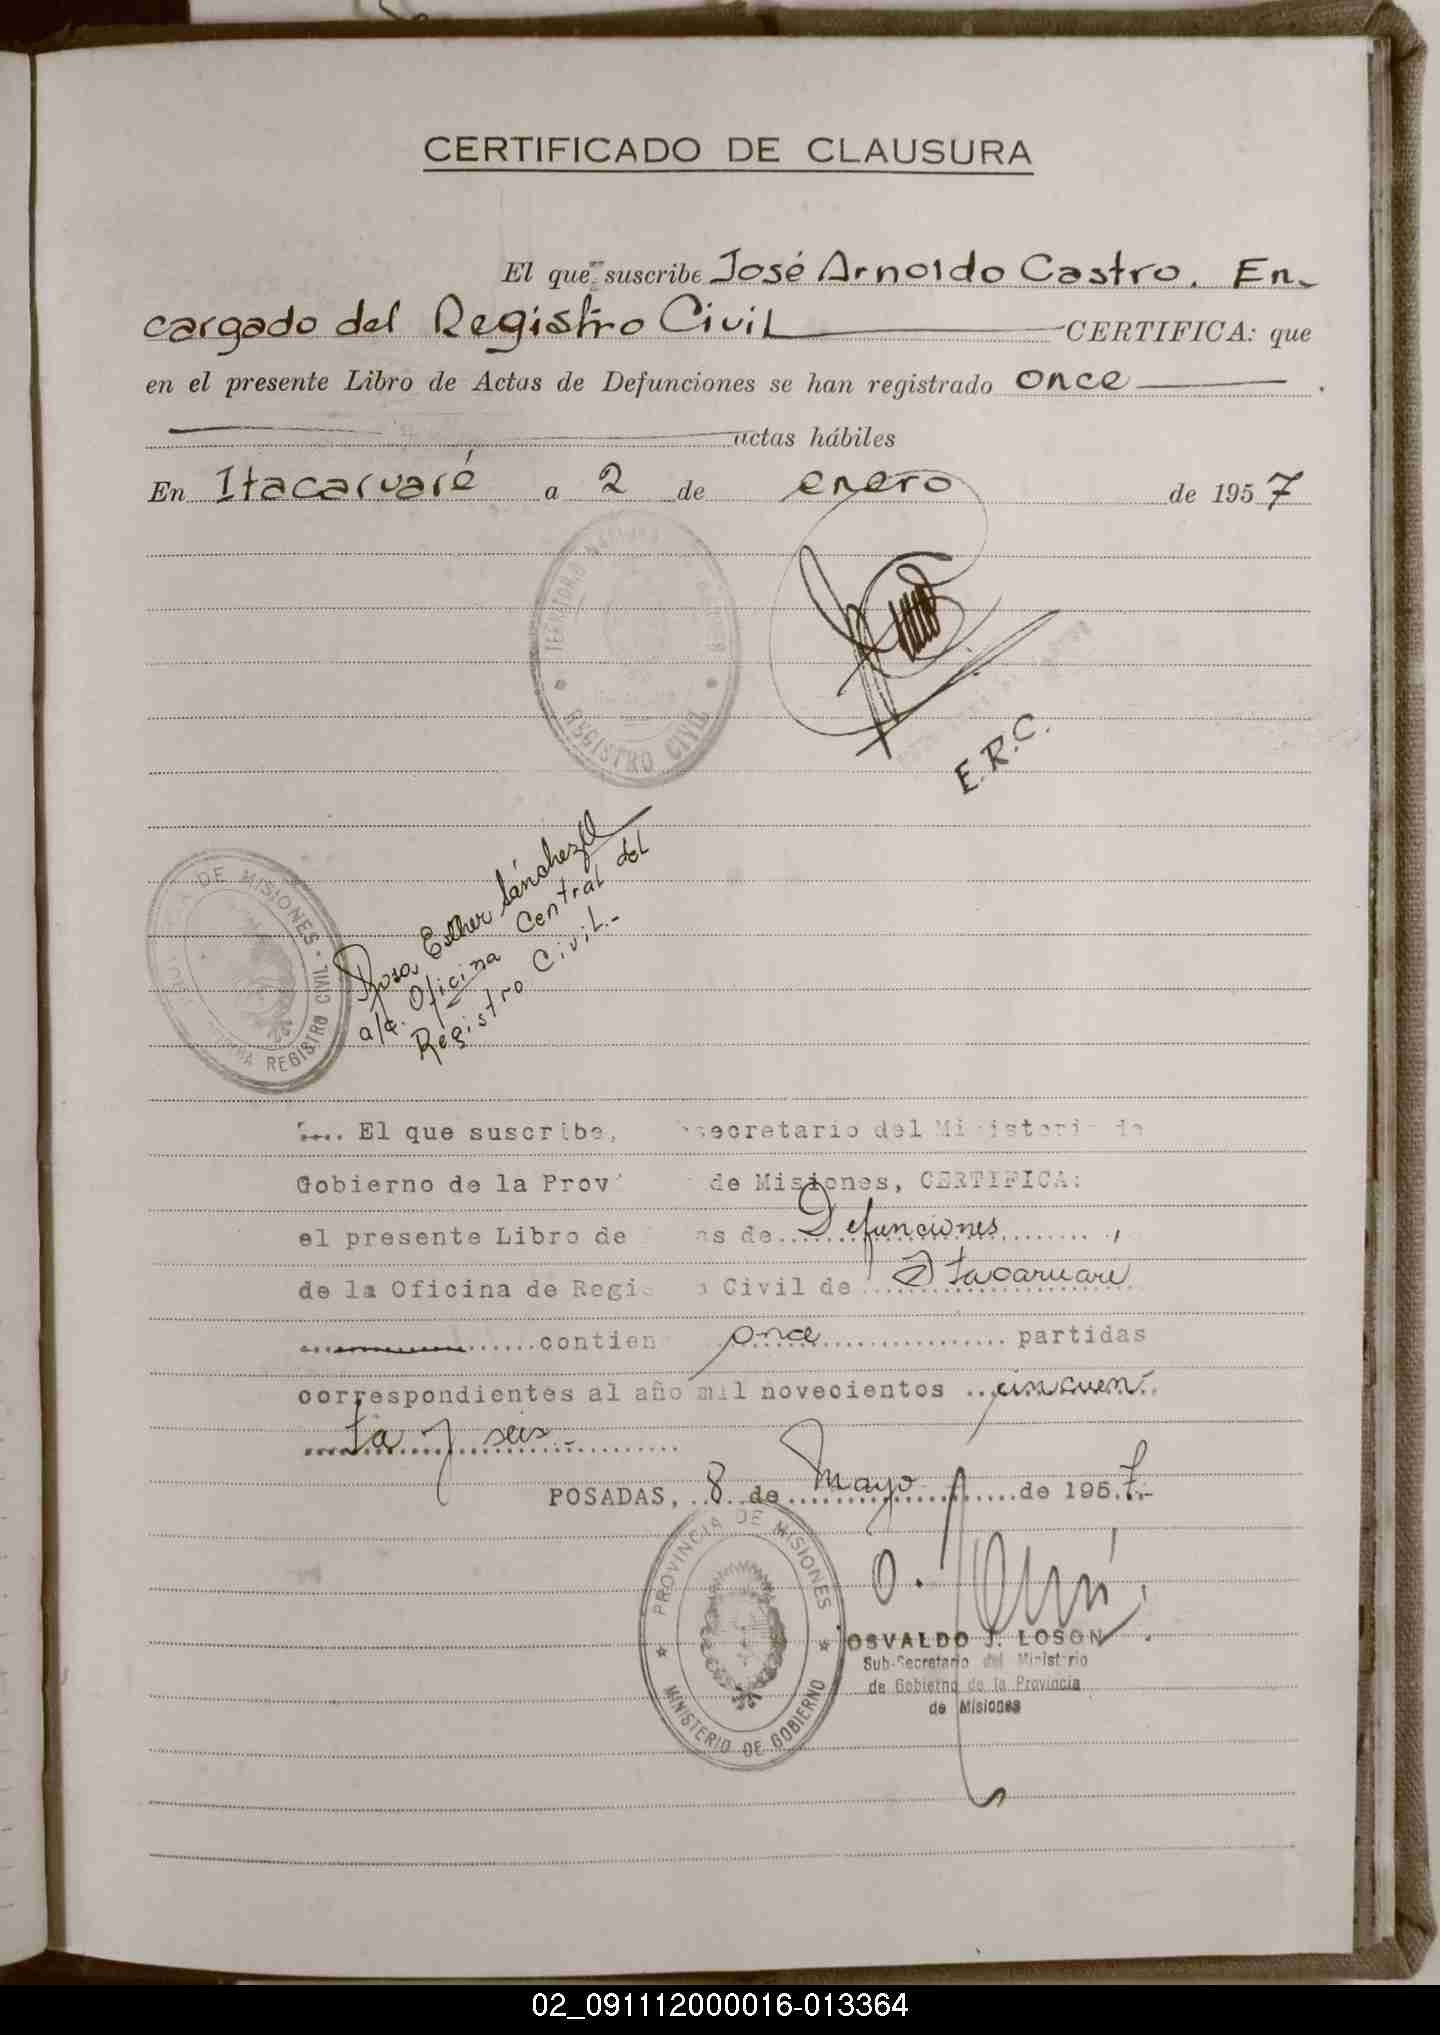 CERTIFICADO DE CLAUSURA
El que suscribe José Arnoldo Castro. En-
cargado del Registro Civil CERTIFICA: que
en el presente Libro de Actas de Defunciones se han registrado once
actas hábiles
En Itacaruaré a 2 de enero de 1957
TERRITORIO NACIONAL DE MISIONES
REGISTRO CIVIL
E.R.C.
Rosa Esther Sánchez
a/c. Oficina Central del
Registro Civil.-
DE MISIONES - REGISTRO CIVIL
.... El que suscribe, secretario del Ministerio de
Gobierno de la Prov de Misiones, CERTIFICA:
el presente Libro de as de Defunciones,
de la Oficina de Regis o Civil de Itacaruare
contien once partidas
correspondientes al año mil novecientos cincuen
ta y seis.-
POSADAS, 8 de Mayo de 1957.-
PROVINCIA DE MISIONES
MINISTERIO DE GOBIERNO
OSVALDO J. LOSON
Sub-Secretario del Ministerio
de Gobierno de la Provincia
de Misiones
02_091112000016-013364